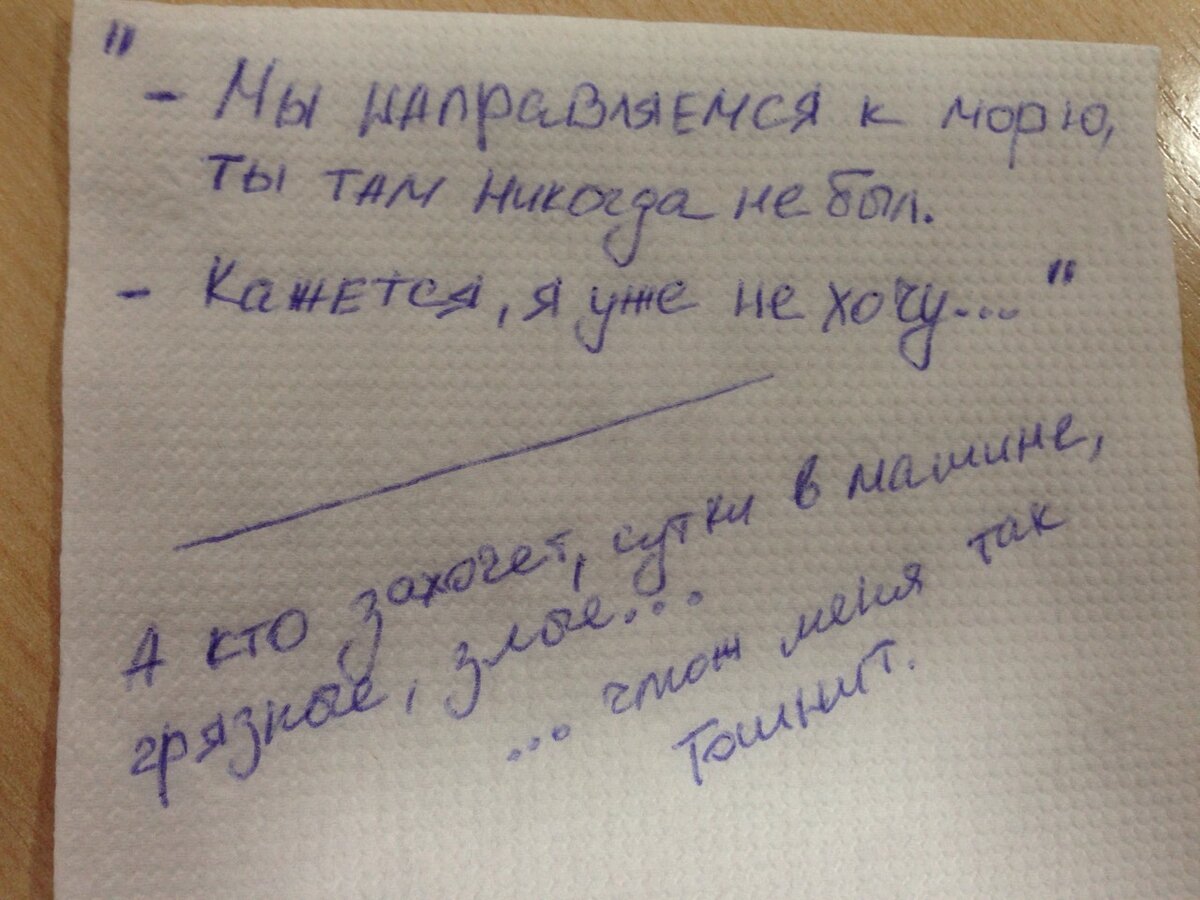 "- Мы направляемся к морю,
ты там никогда не был.
- Кажется, я уже не хочу..."
А кто захочет, сутки в машине,
грязные, злые...
... чтож меня так
тошнит.